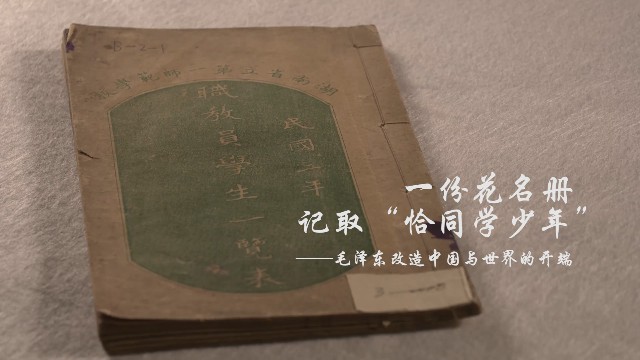 B-2-1
湖南省立第一師範學校
民國 年
職教員學生一覽表
一份花名册
记取“恰同学少年”
——毛泽东改造中国与世界的开端